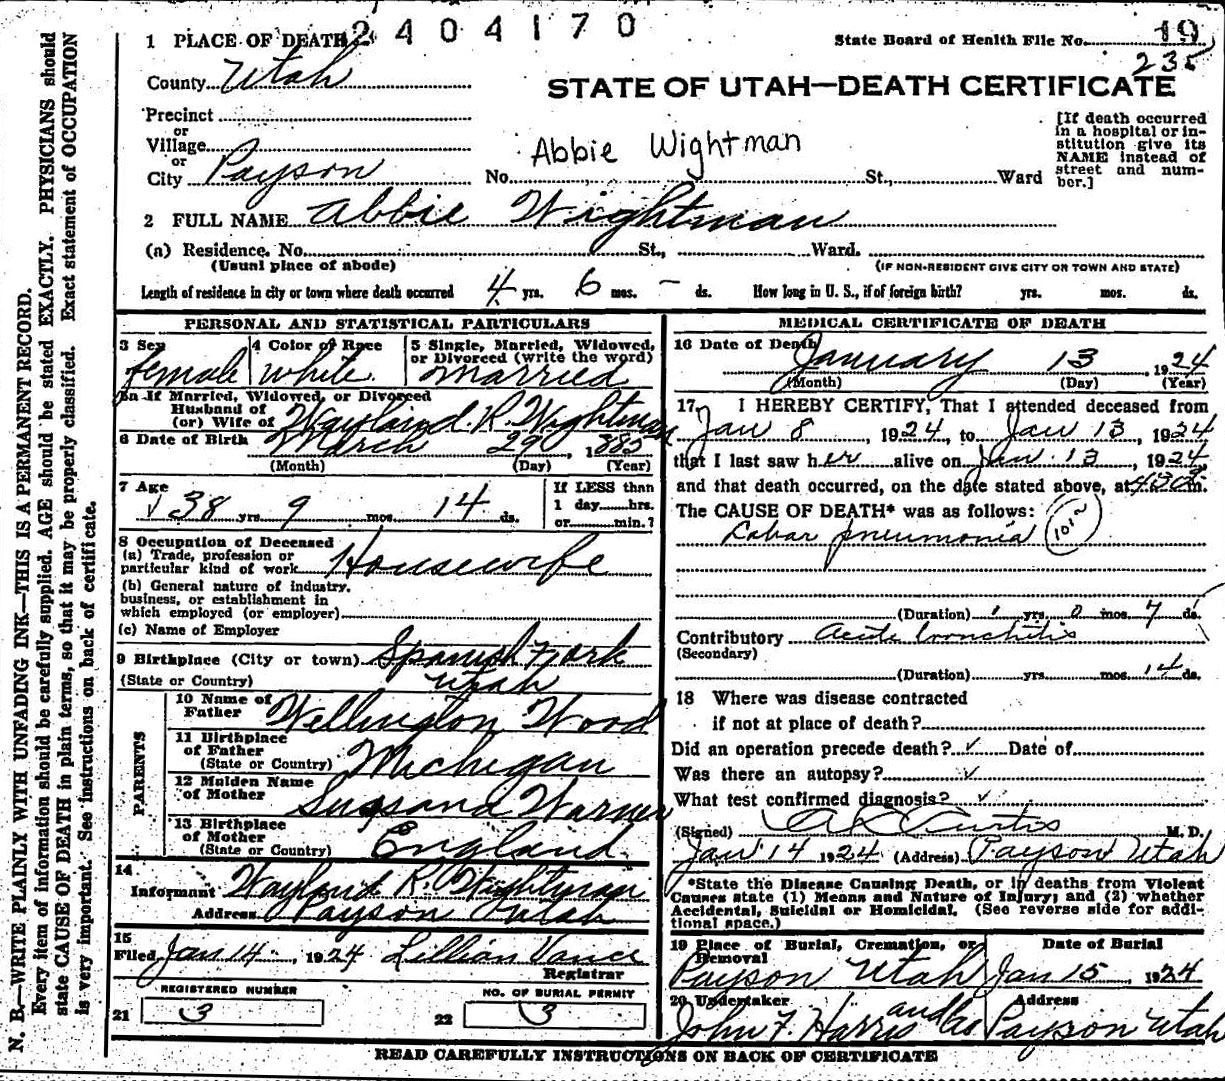 2404170
1 PLACE OF DEATH
State Board of Health File No. 19
235
County Utah
STATE OF UTAH—DEATH CERTIFICATE
Precinct
or
Village
or
City Payson
Abbie Wightman
No. St., Ward
[If death occurred
in a hospital or in-
stitution give its
NAME instead of
street and num-
ber.]
2 FULL NAME Abbie Wightman
(a) Residence. No. St., Ward.
(Usual place of abode)
(IF NON-RESIDENT GIVE CITY OR TOWN AND STATE)
Length of residence in city or town where death occurred 4 yrs. 6 mos. - ds. How long in U. S., if of foreign birth? yrs. mos. ds.
PERSONAL AND STATISTICAL PARTICULARS
3 Sex
female
4 Color or Race
white
5 Single, Married, Widowed,
or Divorced (write the word)
married
5a If Married, Widowed, or Divorced
Husband of
(or) Wife of Wayland R. Wightman
6 Date of Birth March 29, 1885
(Month) (Day) (Year)
7 Age
38 yrs. 9 mos. 14 ds.
If LESS than
1 day hrs.
or min.?
8 Occupation of Deceased
(a) Trade, profession or
particular kind of work Housewife
(b) General nature of industry,
business, or establishment in
which employed (or employer)
(c) Name of Employer
9 Birthplace (City or town) Spanish Fork
(State or Country) Utah
PARENTS
10 Name of
Father Wellington Wood
11 Birthplace
of Father
(State or Country) Michigan
12 Maiden Name
of Mother Warner
13 Birthplace
of Mother
(State or Country) England
14
Informant Wayland R. Wightman
Address Payson Utah
15
Filed Jan 14, 1924 Lillian Vance
Registrar
REGISTERED NUMBER
21 3
NO. OF BURIAL PERMIT
22 3
MEDICAL CERTIFICATE OF DEATH
16 Date of Death January 13, 1924
(Month) (Day) (Year)
17 I HEREBY CERTIFY, That I attended deceased from
Jan 8, 1924, to Jan 13, 1924
that I last saw her alive on Jan. 13, 1924,
and that death occurred, on the date stated above, at m.
The CAUSE OF DEATH* was as follows:
Lobar pneumonia
(Duration) yrs. 0 mos. 7 ds.
Contributory Acute bronchitis
(Secondary)
(Duration) yrs. mos. 14 ds.
18 Where was disease contracted
if not at place of death?
Did an operation precede death? ✓ Date of
Was there an autopsy? ✓
What test confirmed diagnosis? ✓
(Signed) Curtis M. D.
Jan 14 1924 (Address) Payson Utah
*State the Disease Causing Death, or in deaths from Violent
Causes state (1) Means and Nature of Injury; and (2) whether
Accidental, Suicidal or Homicidal. (See reverse side for addi-
tional space.)
19 Place of Burial, Cremation, or
Removal
Payson Utah
Date of Burial
Jan 15, 1924
20 Undertaker
John F. Harris and Co
Address
Payson Utah
READ CAREFULLY INSTRUCTIONS ON BACK OF CERTIFICATE
N. B.—WRITE PLAINLY WITH UNFADING INK—THIS IS A PERMANENT RECORD.
Every item of information should be carefully supplied. AGE should be stated EXACTLY. PHYSICIANS should
state CAUSE OF DEATH in plain terms, so that it may be properly classified. Exact statement of OCCUPATION
is very important. See instructions on back of certificate.